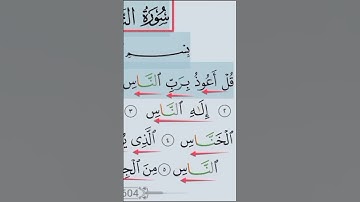 سُورَةُ
بِسْمِ
قُلْ أَعُوذُ بِرَبِّ النَّاسِ
٢ إِلَٰهِ النَّاسِ ٣
الْخَنَّاسِ ٤ الَّذِي
النَّاسِ ٥ مِنَ
604